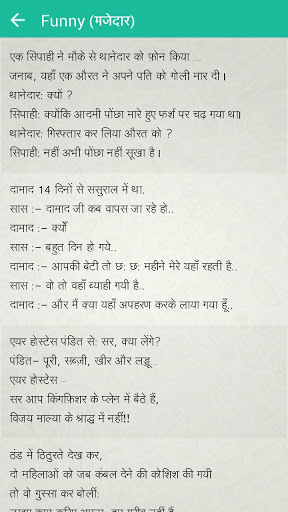 Funny (मजेदार)
एक सिपाही ने मौके से थानेदार को फ़ोन किया ...
जनाब, यहाँ एक औरत ने अपने पति को गोली मार दी।
थानेदार: क्यों ?
सिपाही: क्योंकि आदमी पोंछा मारे हुए फर्श पर चढ़ गया था।
थानेदार: गिरफ्तार कर लिया औरत को ?
सिपाही: नहीं अभी पोंछा नहीं सूखा है।
दामाद 14 दिनों से ससुराल में था.
सास :– दामाद जी कब वापस जा रहे हो..
दामाद :– क्यों
सास :– बहुत दिन हो गये..
दामाद :– आपकी बेटी तो छ: छ: महीने मेरे यहाँ रहती है..
सास :– वो तो वहाँ ब्याही गयी है..
दामाद :– और मैं क्या यहाँ अपहरण करके लाया गया हूँ..
एयर होस्टेस पंडित से: सर, क्या लेंगे?
पंडित– पूरी, सब्ज़ी, खीर और लड्डू...
एयर होस्टेस –
सर आप किंगफ़िशर के प्लेन में बैठे हैं,
विजय माल्या के श्राद्ध में नहीं!!
ठंड में ठिठुरते देख कर,
दो महिलाओं को जब कंबल देने की कोशिश की गयी
तो वो गुस्सा कर बोलीं: